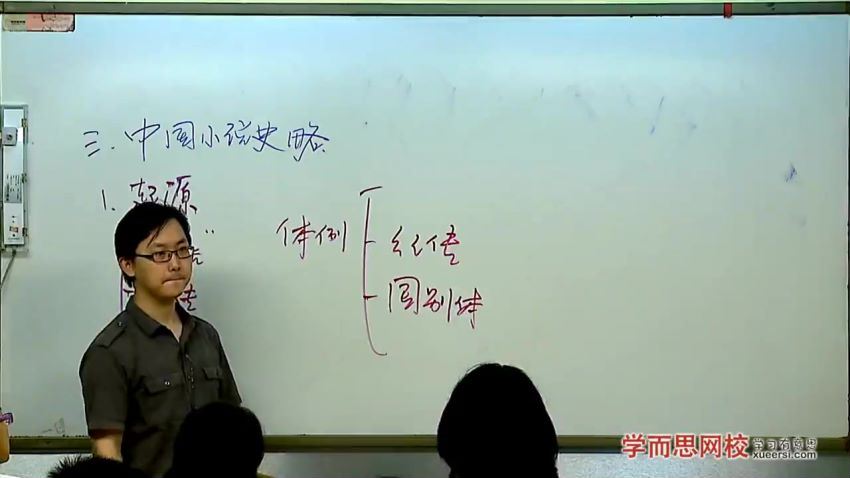 三.中国小说史略
1.起源
体例
纪传
国别体
学而思网校
学习有意思
xueersi.com